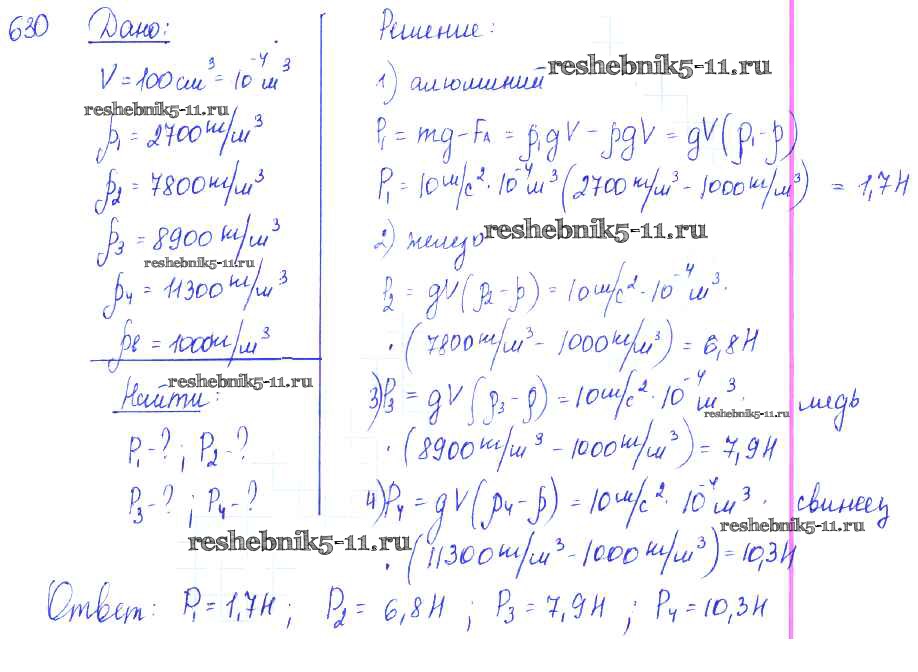 630 Дано:
V = 100 см³ = 10⁻⁴ м³
reshebnik5-11.ru
ρ₁ = 2700 кг/м³
ρ₂ = 7800 кг/м³
ρ₃ = 8900 кг/м³
reshebnik5-11.ru
ρ₄ = 11300 кг/м³
ρв = 1000 кг/м³
reshebnik5-11.ru
Найти:
P₁ - ? ; P₂ - ?
P₃ - ? ; P₄ - ?
reshebnik5-11.ru
Решение:
1) алюминий reshebnik5-11.ru
P₁ = mg - Fᴀ = ρ₁gV - ρgV = gV(ρ₁ - ρ)
P₁ = 10 м/с² · 10⁻⁴ м³ (2700 кг/м³ - 1000 кг/м³) = 1,7 Н
2) железо reshebnik5-11.ru
P₂ = gV(ρ₂ - ρ) = 10 м/с² · 10⁻⁴ м³ ·
· (7800 кг/м³ - 1000 кг/м³) = 6,8 Н
3) P₃ = gV(ρ₃ - ρ) = 10 м/с² · 10⁻⁴ м³ · медь
reshebnik5-11.ru
· (8900 кг/м³ - 1000 кг/м³) = 7,9 Н
4) P₄ = gV(ρ₄ - ρ) = 10 м/с² · 10⁻⁴ м³ · свинец
reshebnik5-11.ru
· (11300 кг/м³ - 1000 кг/м³) = 10,3 Н
Ответ: P₁ = 1,7 Н ; P₂ = 6,8 Н ; P₃ = 7,9 Н ; P₄ = 10,3 Н